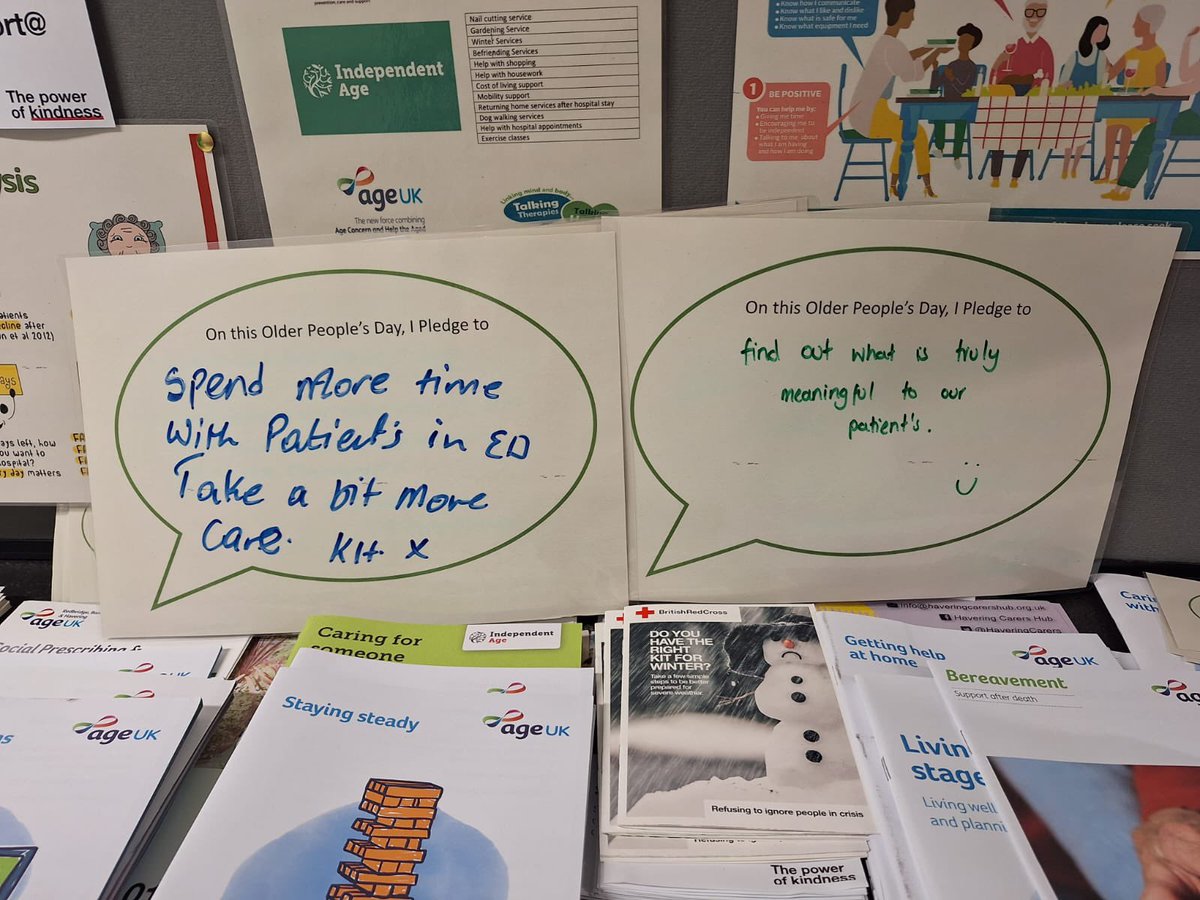 ort@
The power
of kindness
prevention, care and support
Independent
Age
Nail cutting service
Gardening Service
Winter Services
Befriending Services
Help with shopping
Help with housework
Cost of living support
Mobility support
Returning home services after hospital stay
Dog walking services
Help with hospital appointments
Exercise classes
age UK
The new force combining
Age Concern and Help the Aged
Linking mind and body
Talking
Therapies
Talking
• Know how I communicate
• Know what I like and dislike
• Know what is safe for me
• Know what equipment I need
1 BE POSITIVE
You can help me by:
• Giving me time
• Encouraging me to
be independent
• Talking to me about
what I am having
and how I am doing
ysis
patients
cline after
n et al 2012)
ays
ays left, how
you want to
hospital?
y day matters
On this Older People's Day, I Pledge to
Spend more time
With Patient's in ED
Take a bit more
Care. KH. x
On this Older People's Day, I Pledge to
find out what is truly
meaningful to our
patient's.
Redbridge, Bar
& Havering
age UK
Social Prescribing &
age UK
ns
Caring for
someone
Independent
Age
Staying steady
age UK
BritishRedCross
DO YOU
HAVE THE
RIGHT
KIT FOR
WINTER?
Take a few simple
steps to be better
prepared for
severe weather.
Refusing to ignore people in crisis
The power
of kindness
info@haveringcarershub.org.uk
Havering Carers Hub
@HaveringCarers
Getting help
at home
age UK
Bereavement
Support after death
age
Livin
stage
Living well
and planni
Carin
with